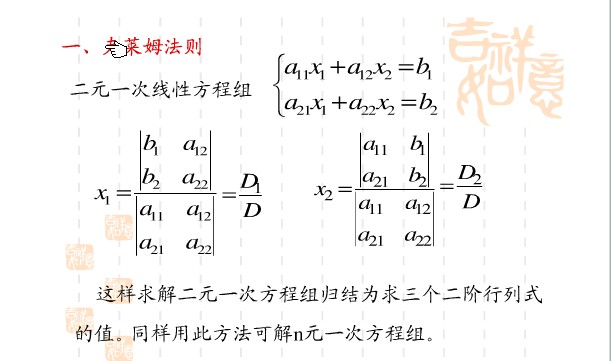 一、克莱姆法则
二元一次线性方程组
a₁₁x₁+a₁₂x₂=b₁
a₂₁x₁+a₂₂x₂=b₂
x₁ = |b₁ a₁₂; b₂ a₂₂| / |a₁₁ a₁₂; a₂₁ a₂₂| = D₁/D
x₂ = |a₁₁ b₁; a₂₁ b₂| / |a₁₁ a₁₂; a₂₁ a₂₂| = D₂/D
这样求解二元一次方程组归结为求三个二阶行列式
的值。同样用此方法可解n元一次方程组。
吉祥如意